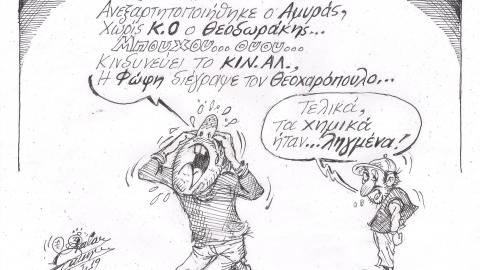 Ανεξαρτητοποιήθηκε ο Αμυράς,
Χωρίς Κ.Ο ο Θεοδωράκης...
Μπουχου... ουου...
Κινδυνεύει το ΚΙΝ.ΑΛ.,
Η Φώφη διέγραψε τον Θεοχαρόπουλο...
Τελικά,
τα χημικά
ήταν...ληγμένα!